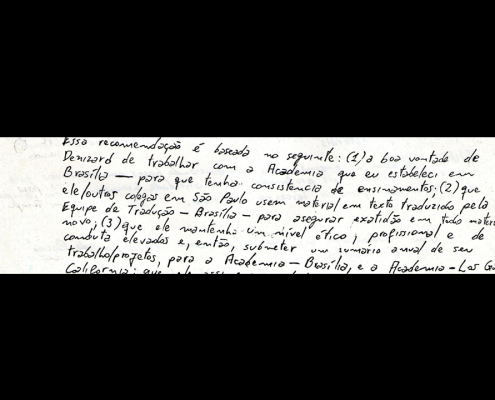 Essa recomendação é baseada no seguinte: (1) a boa vontade de
Denizard de trabalhar com a Academia que eu estabeleci em
Brasília — para que tenha consistencia de ensinamentos; (2) que
ele/outros colegas em São Paulo usem material em texto traduzido pela
Equipe de Tradução – Brasília – para assegurar exatidão em todo materi
novo; (3) que ele mantenha um nível ético, profissional e de
conduta elevados e, então, submeter um sumário anual de seu
trabalho/projetos, para a Academia – Brasília, e a Academia – Los G
California; que ele